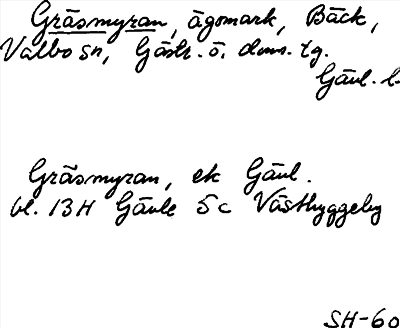 Gräsmyran, ägomark, Bäck,
Valbo sn, Gästr. ö. doms. tg.
Gävl. l.
Gräsmyran, ek Gävl.
bl. 13H Gävle 5c Västbyggeby
SH-60